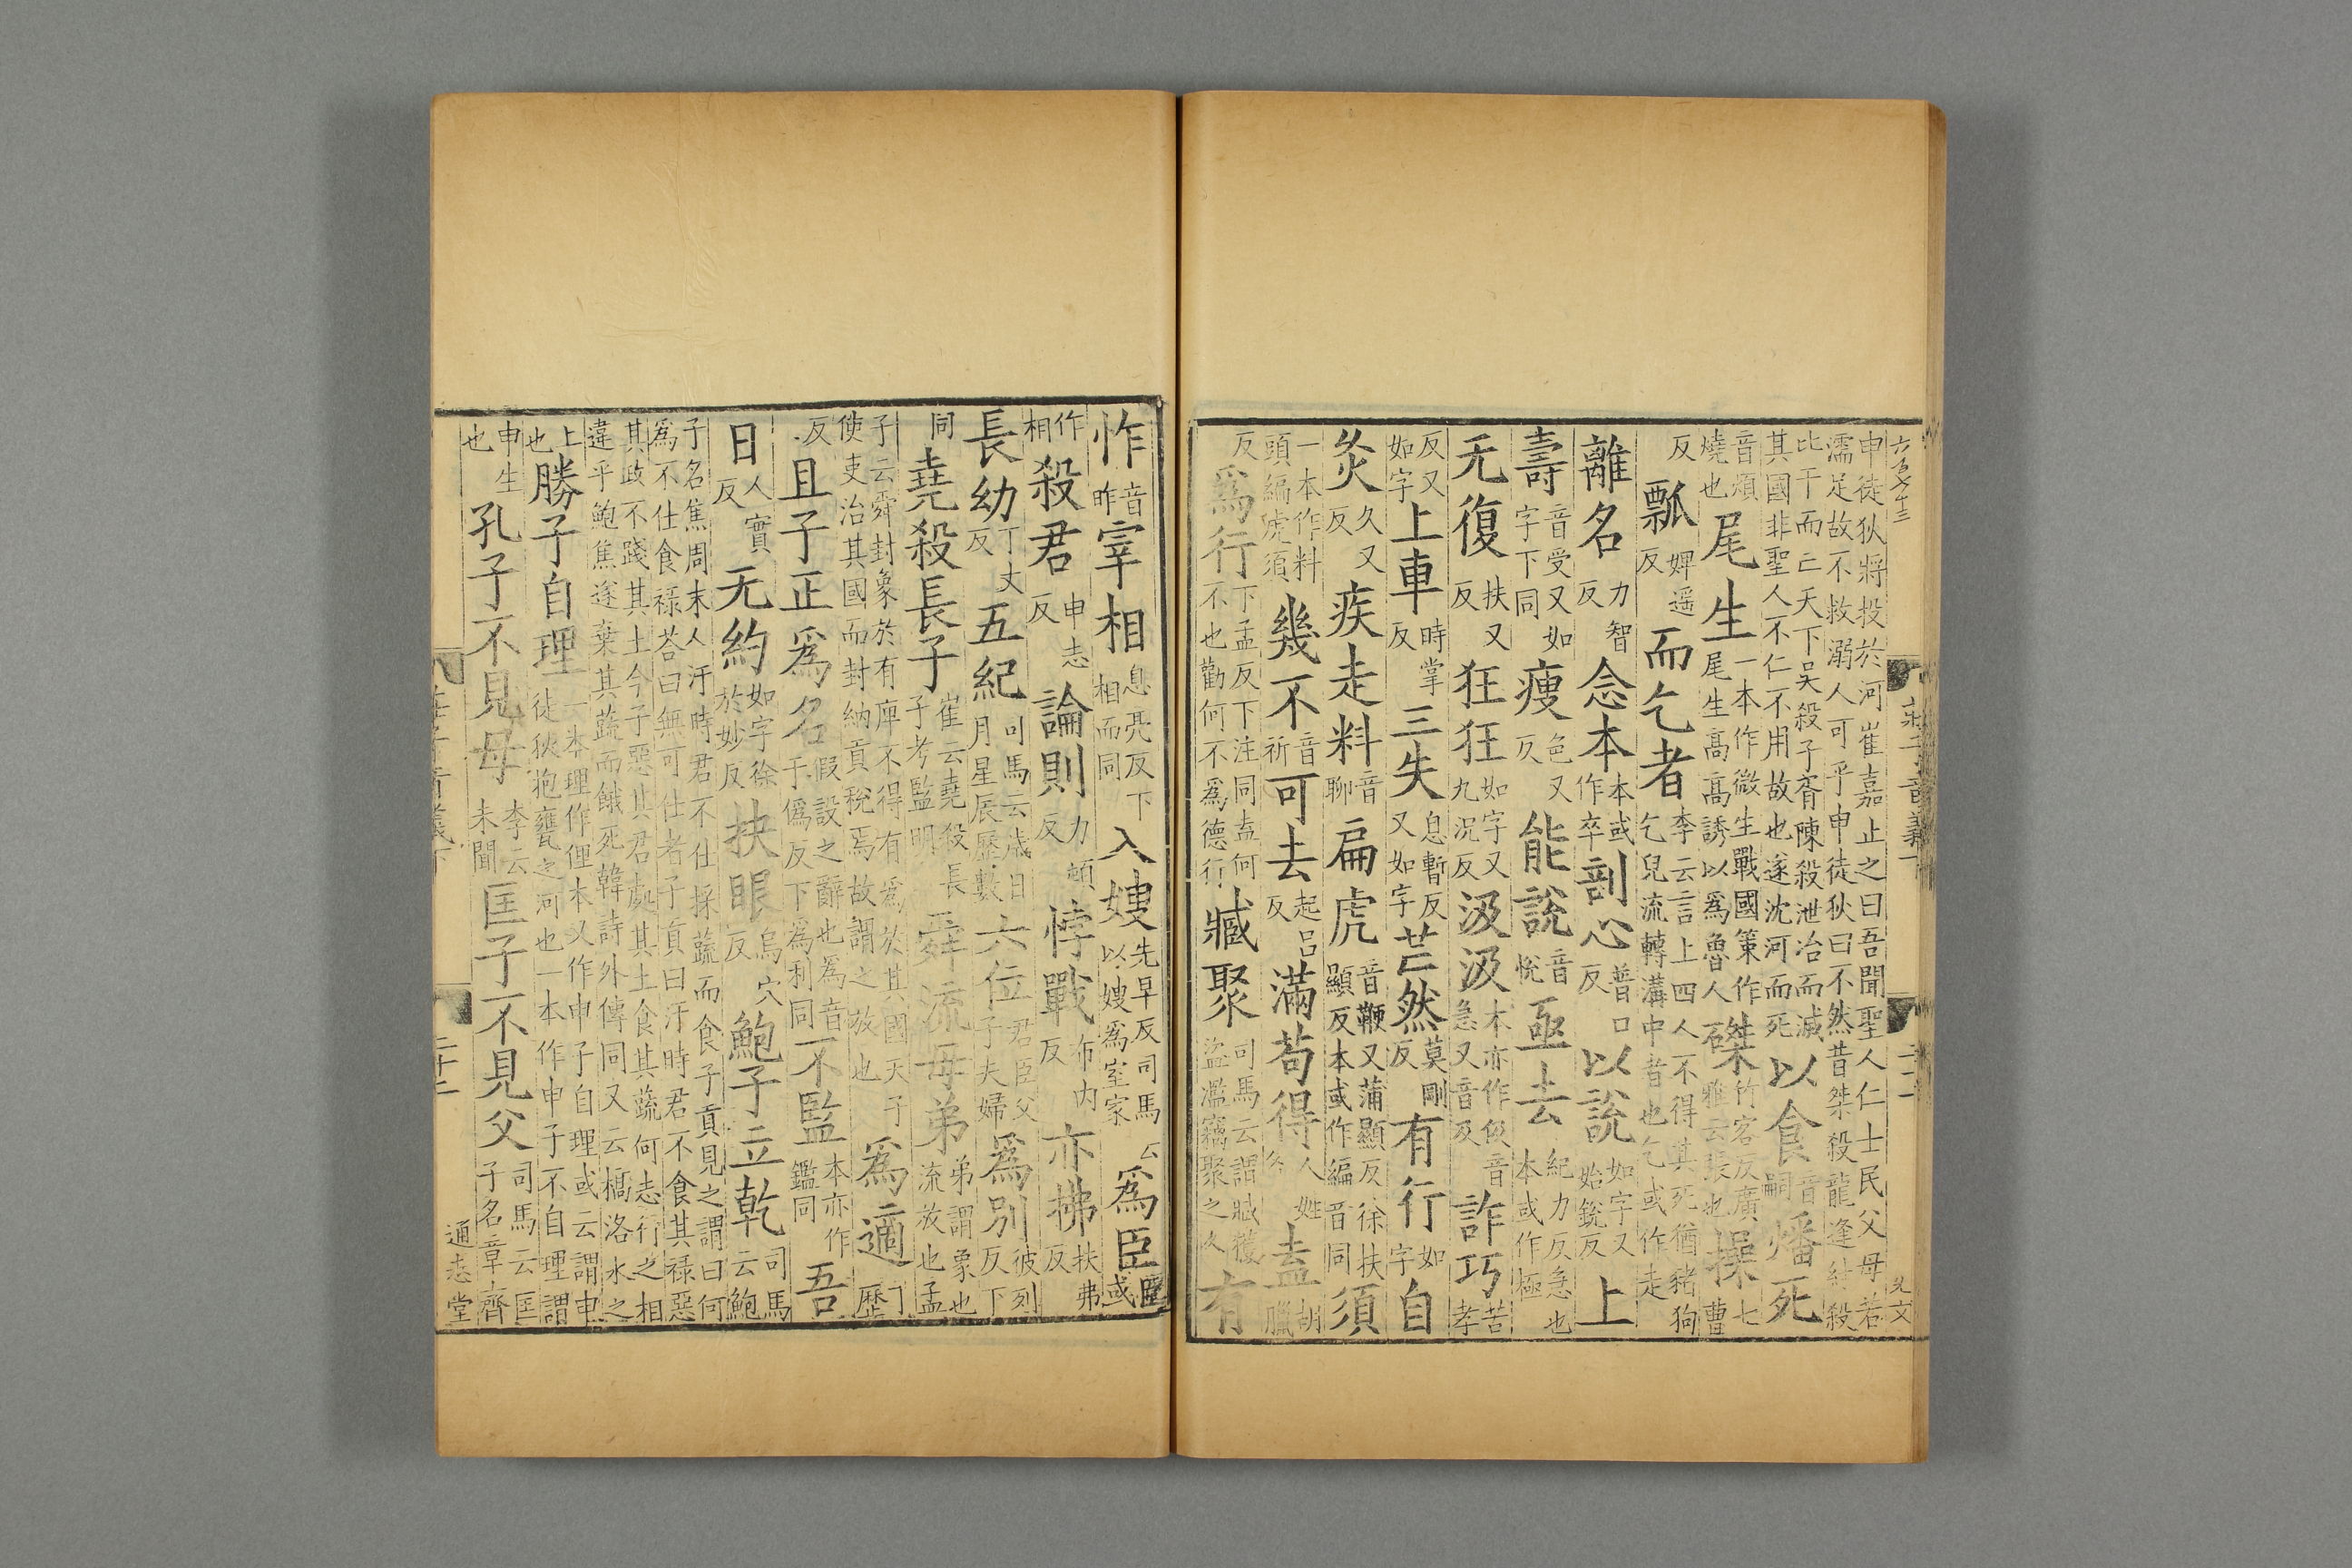 申徒狄將投於河崔嘉止之曰吾聞聖人仁士民父母若濡足故不救溺人可乎申徒狄曰不然昔桀殺龍逢紂殺
比干而亡天下吳殺子胥陳殺泄冶而滅其國非聖人不仁不用故也遂沈河而死以食音嗣燔死
音煩燒也尾生一本作微生戰國策作尾生高高誘以爲魯人磔竹客反廣雅云張也操七曹
反瓢婢遥反而乞者李云言上四人不得其死猶豬狗乞兒流轉溝中者也乞或作走
離名力智反念本本或作卒剖心普口反以說如字又始銳反上
壽音受又如字下同瘦色又反能說音悅亟去紀力反急也本或作極
无復扶又反狂狂如字又九況反汲汲本亦作伋音急又音及詐巧苦孝
反又如字上車時掌反三失息暫反又如字芒然莫剛反有行如字自
灸久又反疾走料音聊扁虎音鞭又蒲顯反徐扶顯反本或作編音同須
一本作料頭編虎須幾不音祈可去起呂反滿苟得人姓名盍胡臘
反爲行下孟反下注同盍何不也勸何不爲德行臧聚司馬云謂臧獲盜濫竊聚之人有
怍音昨宰相息亮反下相而同入嫂先早反司馬云以嫂爲室家爲臣臣或
作相殺君申志反論則力頓反悖戰布內反亦拂扶弗反
長幼丁丈反五紀司馬云歲日月星辰歷數六位君臣父子夫婦爲別彼列反下
同堯殺長子崔云堯殺長子考監明舜流母弟弟謂象也流放也孟
子云舜封象於有庳不得有爲於其國天子使吏治其國而封納貢稅焉故謂之放也爲適丁歷
反且子正爲名假設之辭也爲音于僞反下爲利同不監本亦作鑑同吾
日人實反无約如字徐於妙反抉眼烏穴反鮑子立乾司馬云鮑
子名焦周末人汙時君不仕採蔬而食子貢見之謂曰何爲不仕食祿荅曰無可仕者子貢曰汙時君不食其祿惡
其政不踐其土今子惡其君處其土食其蔬何志行之相違乎鮑焦遂棄其蔬而餓死韓詩外傳同又云槁洛水之
上也勝子自理一本理作俚本又作申子自理或云謂申徒狄抱甕之河也一本作申子不自理謂
申生也孔子不見母李云未聞匡子不見父司馬云匡子名章齊
通志堂